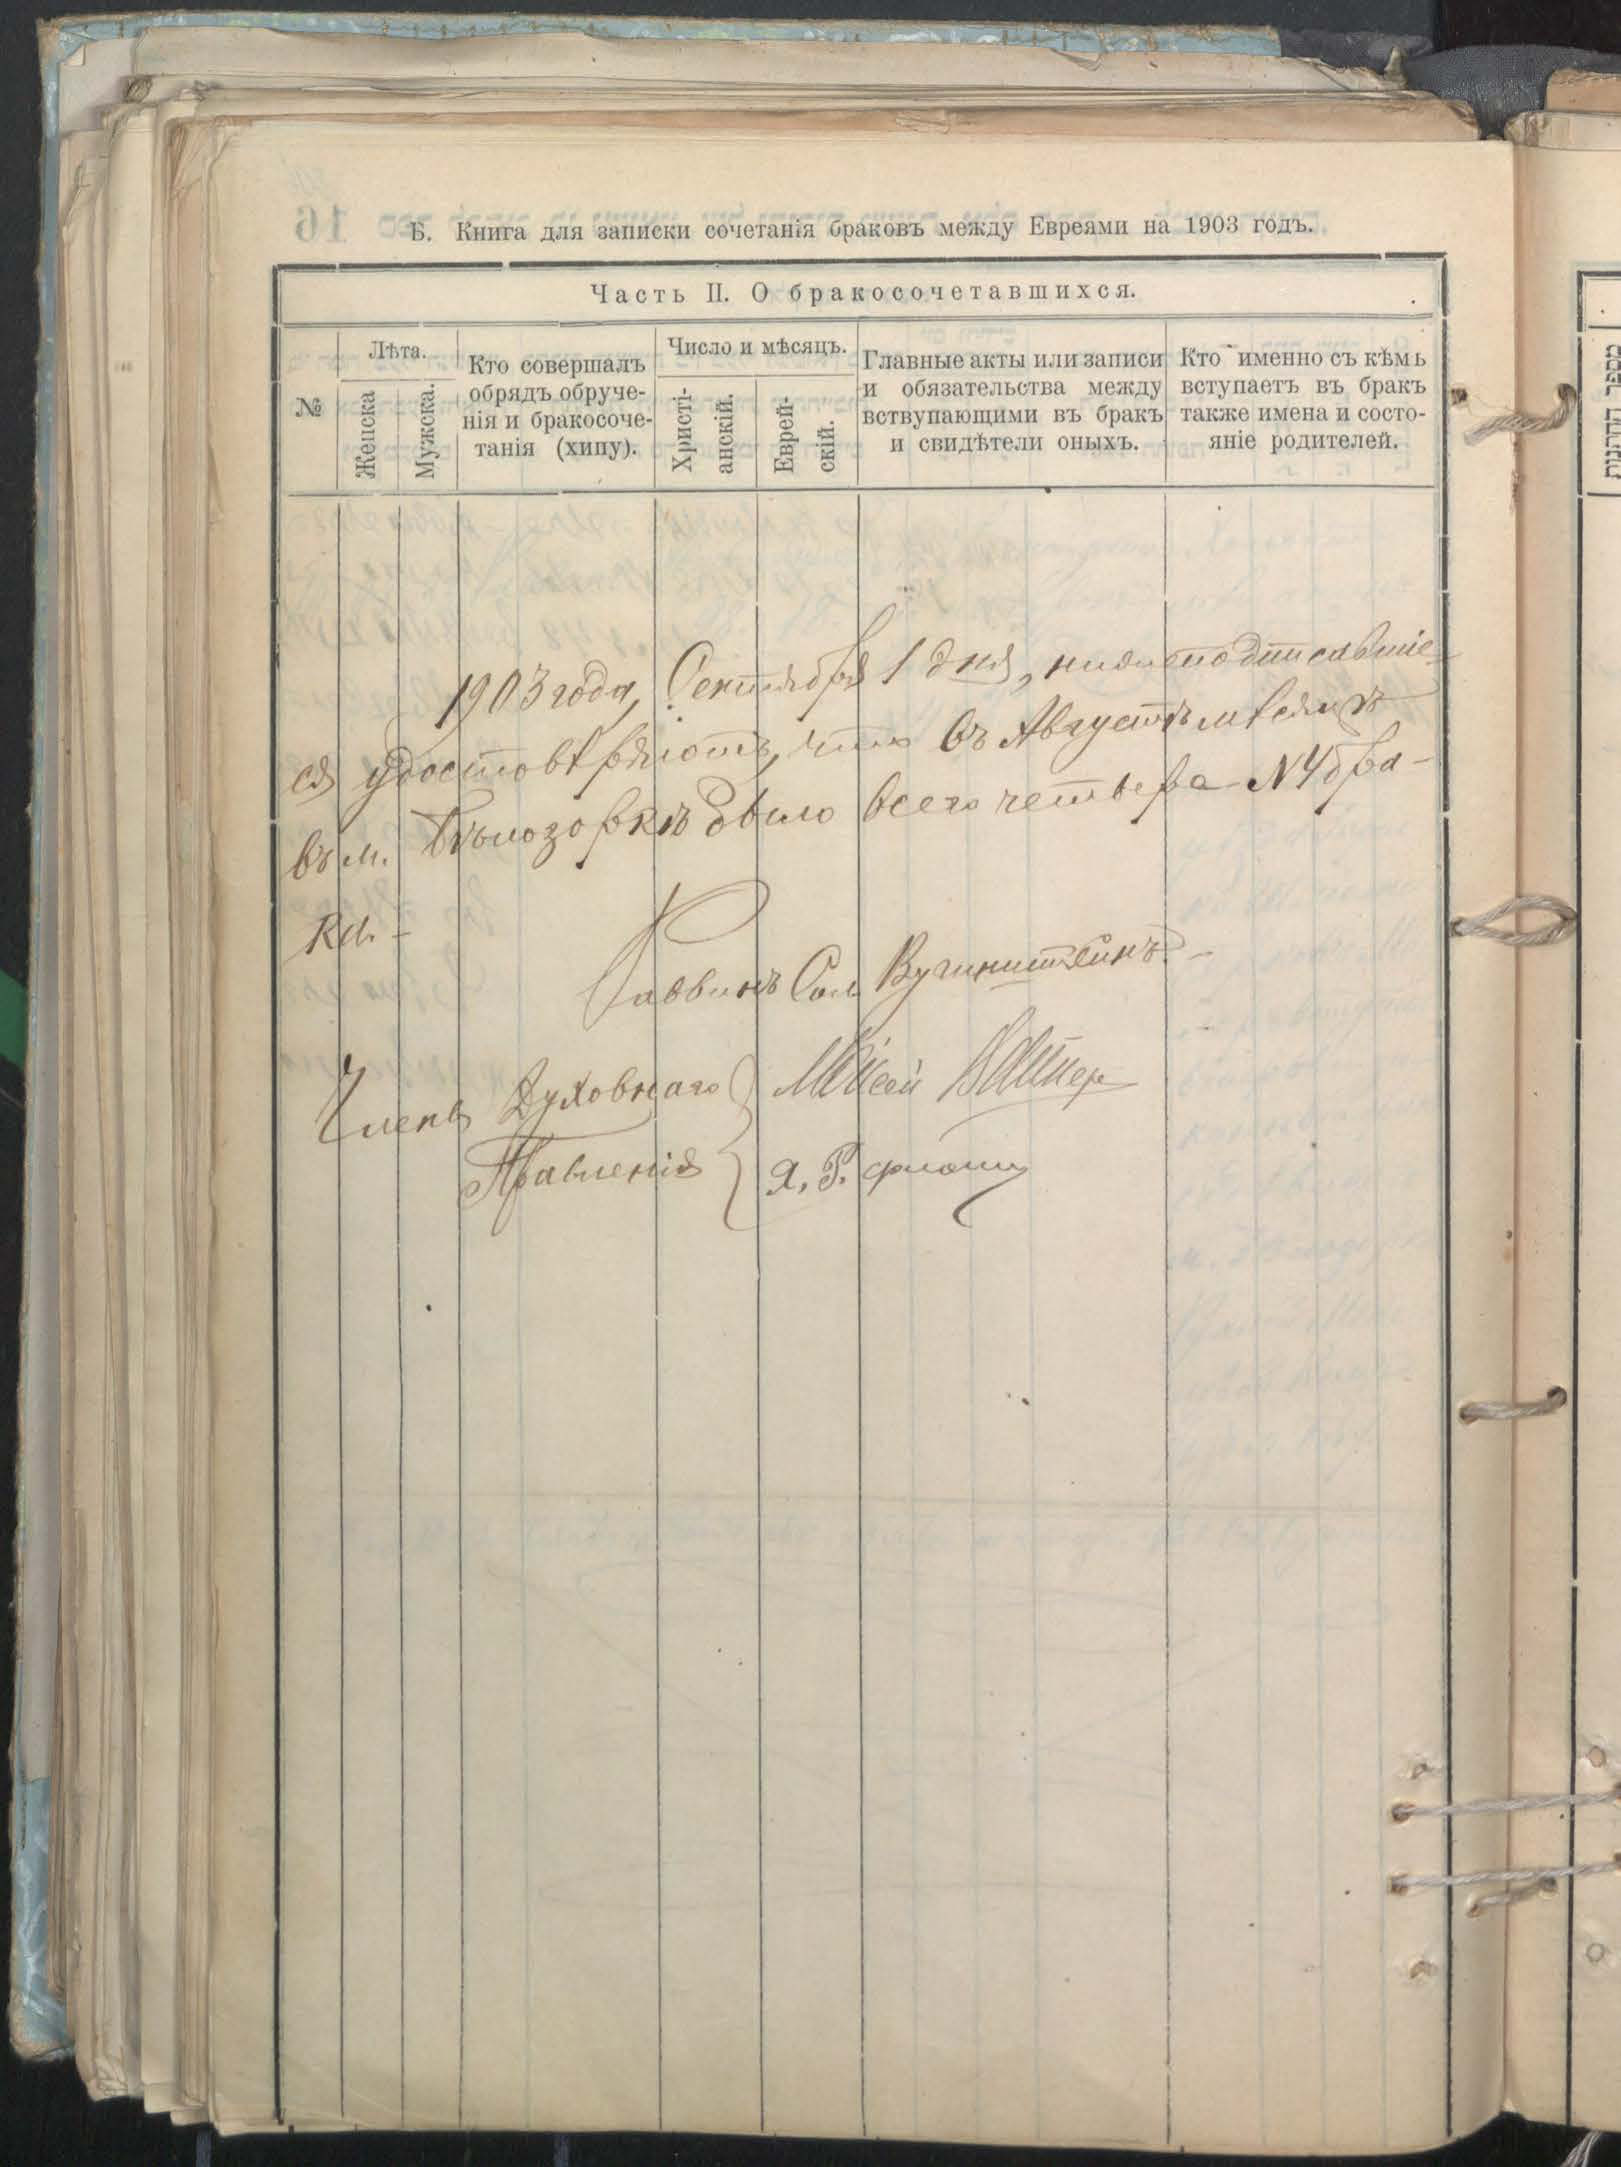 Б. Книга для записки сочетанія браковъ между Евреями на 1903 годъ.
Часть II. О бракосочетавшихся.
№
Лѣта.
Женска
Мужска.
Кто совершалъ
обрядъ обруче-
нія и бракосоче-
танія (хипу).
Число и мѣсяцъ.
Христі-
анскій.
Еврей-
скій.
Главные акты или записи
и обязательства между
вствупающими въ бракъ
и свидѣтели оныхъ.
Кто именно съ кѣмъ
вступаетъ въ бракъ
также имена и состо-
яніе родителей.
1903 года, Сентября 1 дня, нижеподписавшіе-
ся удостовѣряютъ, что въ Августѣ мѣсяцѣ
въ м. Бѣлозоркѣ было всего четыре - N4 бра-
ка. -
Раввинъ Сол.
Члены Духовнаго
Правленія
Мойсей Вайнер
Я. Р.
16